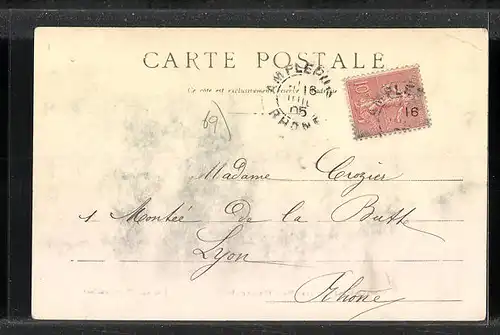 CARTE POSTALE
Ce côté est exclusivement réservé à l'adresse
AMPLEPUIS
16
JUIL
05
RHONE
10
AMPLE
16
69)
Madame Crozier
1 Montée de la Butte
Lyon
Rhône